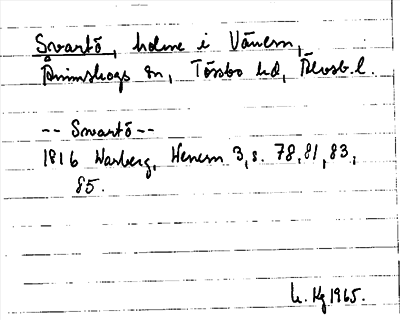 Svartö, holme i Vänern,
Ånimskogs sn, Tössbo hd, Älvsb. l.
-- Svartö --
1816 Warberg, Wenern 3, s. 78, 81, 83,
85.
Kg 1965.